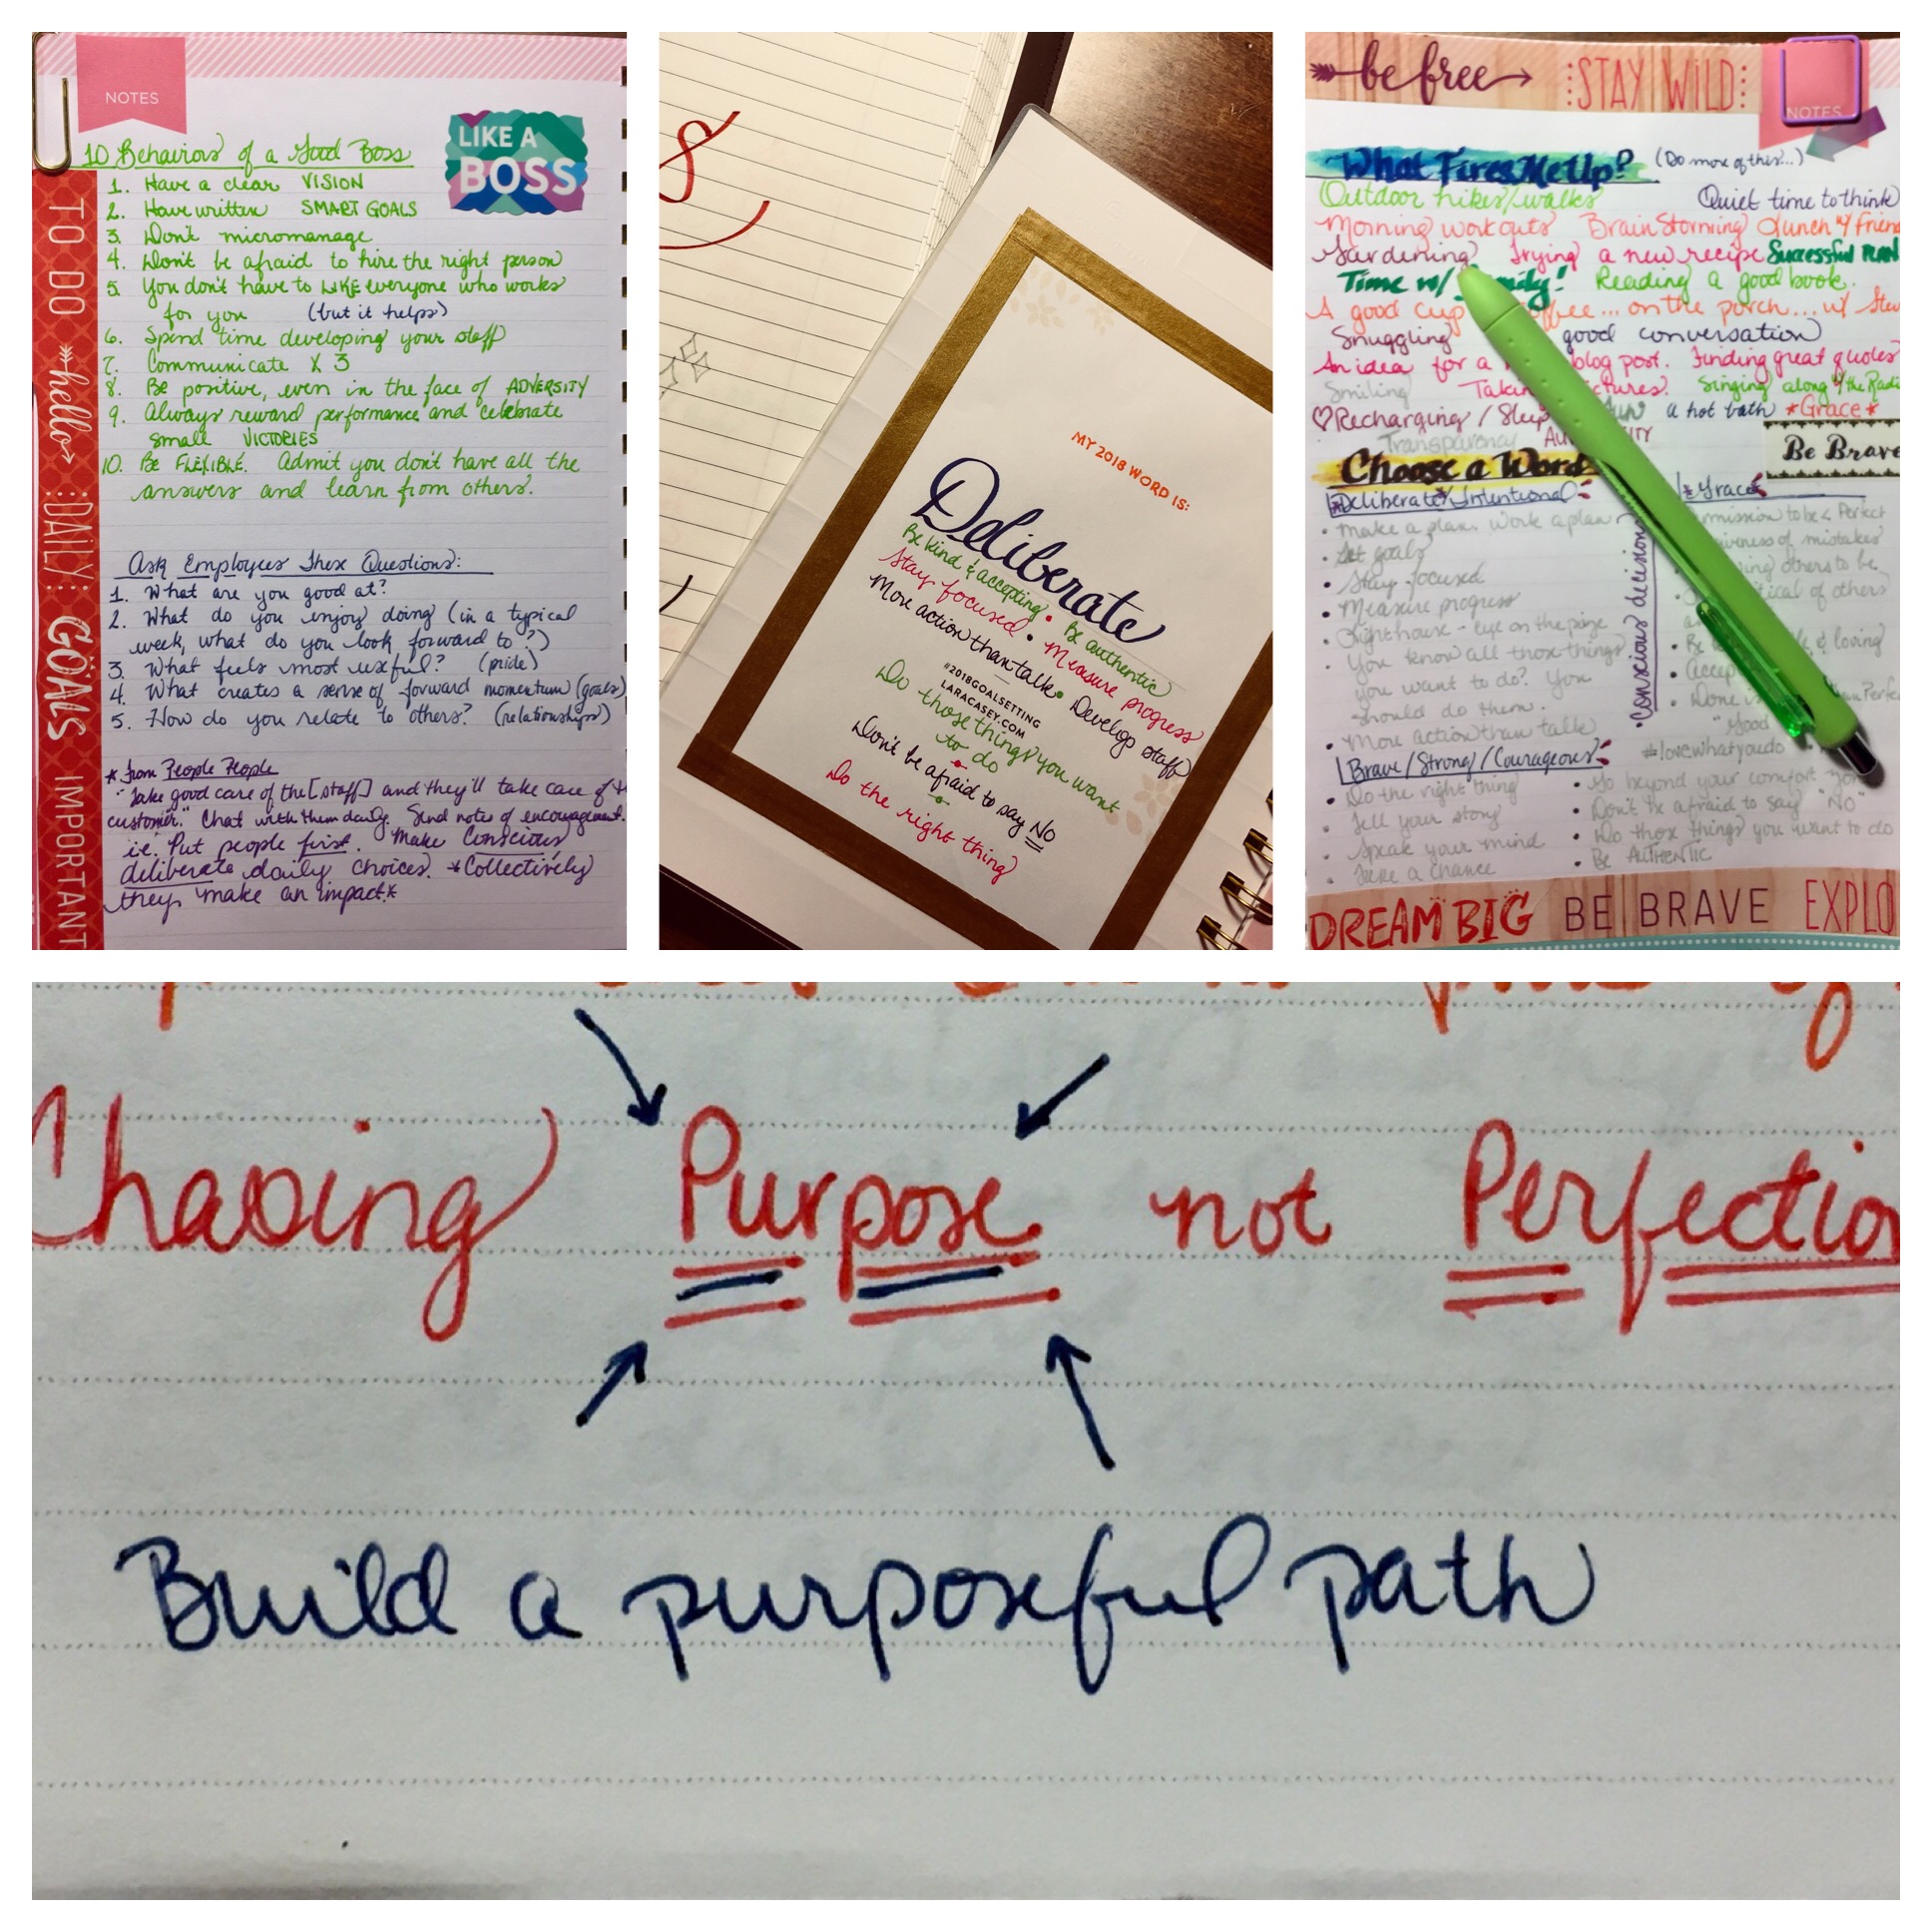 NOTES
LIKE A
BOSS
10 Behaviors of a Good Boss
1. Have a clear VISION
2. Have written SMART GOALS
3. Don't micromanage
4. Don't be afraid to hire the right person
5. You don't have to LIKE everyone who works
for you (but it helps)
6. Spend time developing your staff
7. Communicate X 3
8. Be positive, even in the face of ADVERSITY
9. Always reward performance and celebrate
small VICTORIES
10. Be FLEXIBLE. Admit you don't have all the
answers and learn from others.
Ask Employees These Questions:
1. What are you good at?
2. What do you enjoy doing (in a typical
week, what do you look forward to?)
3. What feels most useful? (pride)
4. What creates a sense of forward momentum (goals)
5. How do you relate to others? (relationships)
* from People People
"Take good care of the [staff] and they'll take care of
customer." Chat with them daily. Send notes of encouragement.
i.e. Put people first. Make Conscious
deliberate daily choices. *Collectively
they make an impact*
TO DO hello :DAILY: GOALS IMPORTANT
8
MY 2018 WORD IS:
Deliberate
Be kind & accepting • Be authentic
Stay focused • Measure progress
More action than talk • Develop staff
#2018GOALSETTING
LARACASEY.COM
Do those things you want
to do
Don't be afraid to say NO
Do the right thing
be free :STAY WILD:
NOTES
What Fires Me Up? (Do more of this...)
Outdoor hikes/walks Quiet time to think
Morning workouts BrainStorming Lunch w/ Frien
Gardening Trying a new recipe Successful PLAN
Time w/ Reading a good book.
A good cup ... on the porch... w/
Snuggling good conversation
An idea for a blog post. Finding great quotes
Smiling Singing along w/ the Radi
♡Recharging / a hot bath *Grace*
Transparency
Be Brave
Choose a Word
*Deliberate/Intentional *Grace
• Make a plan. Work a plan
• Set goals
• Stay focused
• Measure progress
• Lighthouse - eye on the prize
• You know all those things
you want to do? You
should do them.
• More action than talk
• conscious decision
mistakes
others to be
of others
& loving
"Good
#lovewhatyoudo
Brave/Strong/Courageous
• Do the right thing
• Tell your story
• Speak your mind
• Take a chance
• Go beyond your comfort
• Don't be afraid to say "NO"
• Do those things you want to do
• Be AUTHENTIC
DREAM BIG BE BRAVE EXPLO
Chasing Purpose not Perfectio
Build a purposeful path